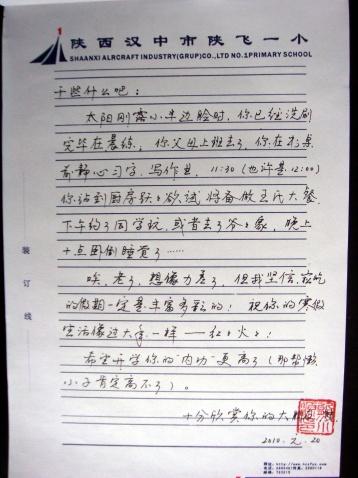 陕西汉中市陕飞一小
SHAANXI ALRCRAFT INDUSTRY(GRUP)CO.,LTD NO.1PRIMARY SCHOOL
干些什么呢：
太阳刚露小半边脸时，你已经洗刷
完毕在晨练，你父母上班去了，你在书桌
前静心习字，写作业，11:30（也许是12:00）
你站到厨房跃跃欲试将备做王氏大餐，
下午约了同学玩，或者去了爷爷家，晚上
十点卧倒睡觉了……
唉，老了，想像力差了，但我坚信，
的假期一定是丰富多彩的！祝你的寒假
生活像过大年一样——红红火火！
希望开学你的“内功”更高了（那帮
小子肯定高不了）。
十分欣赏你的大
2010.元.20
装订线